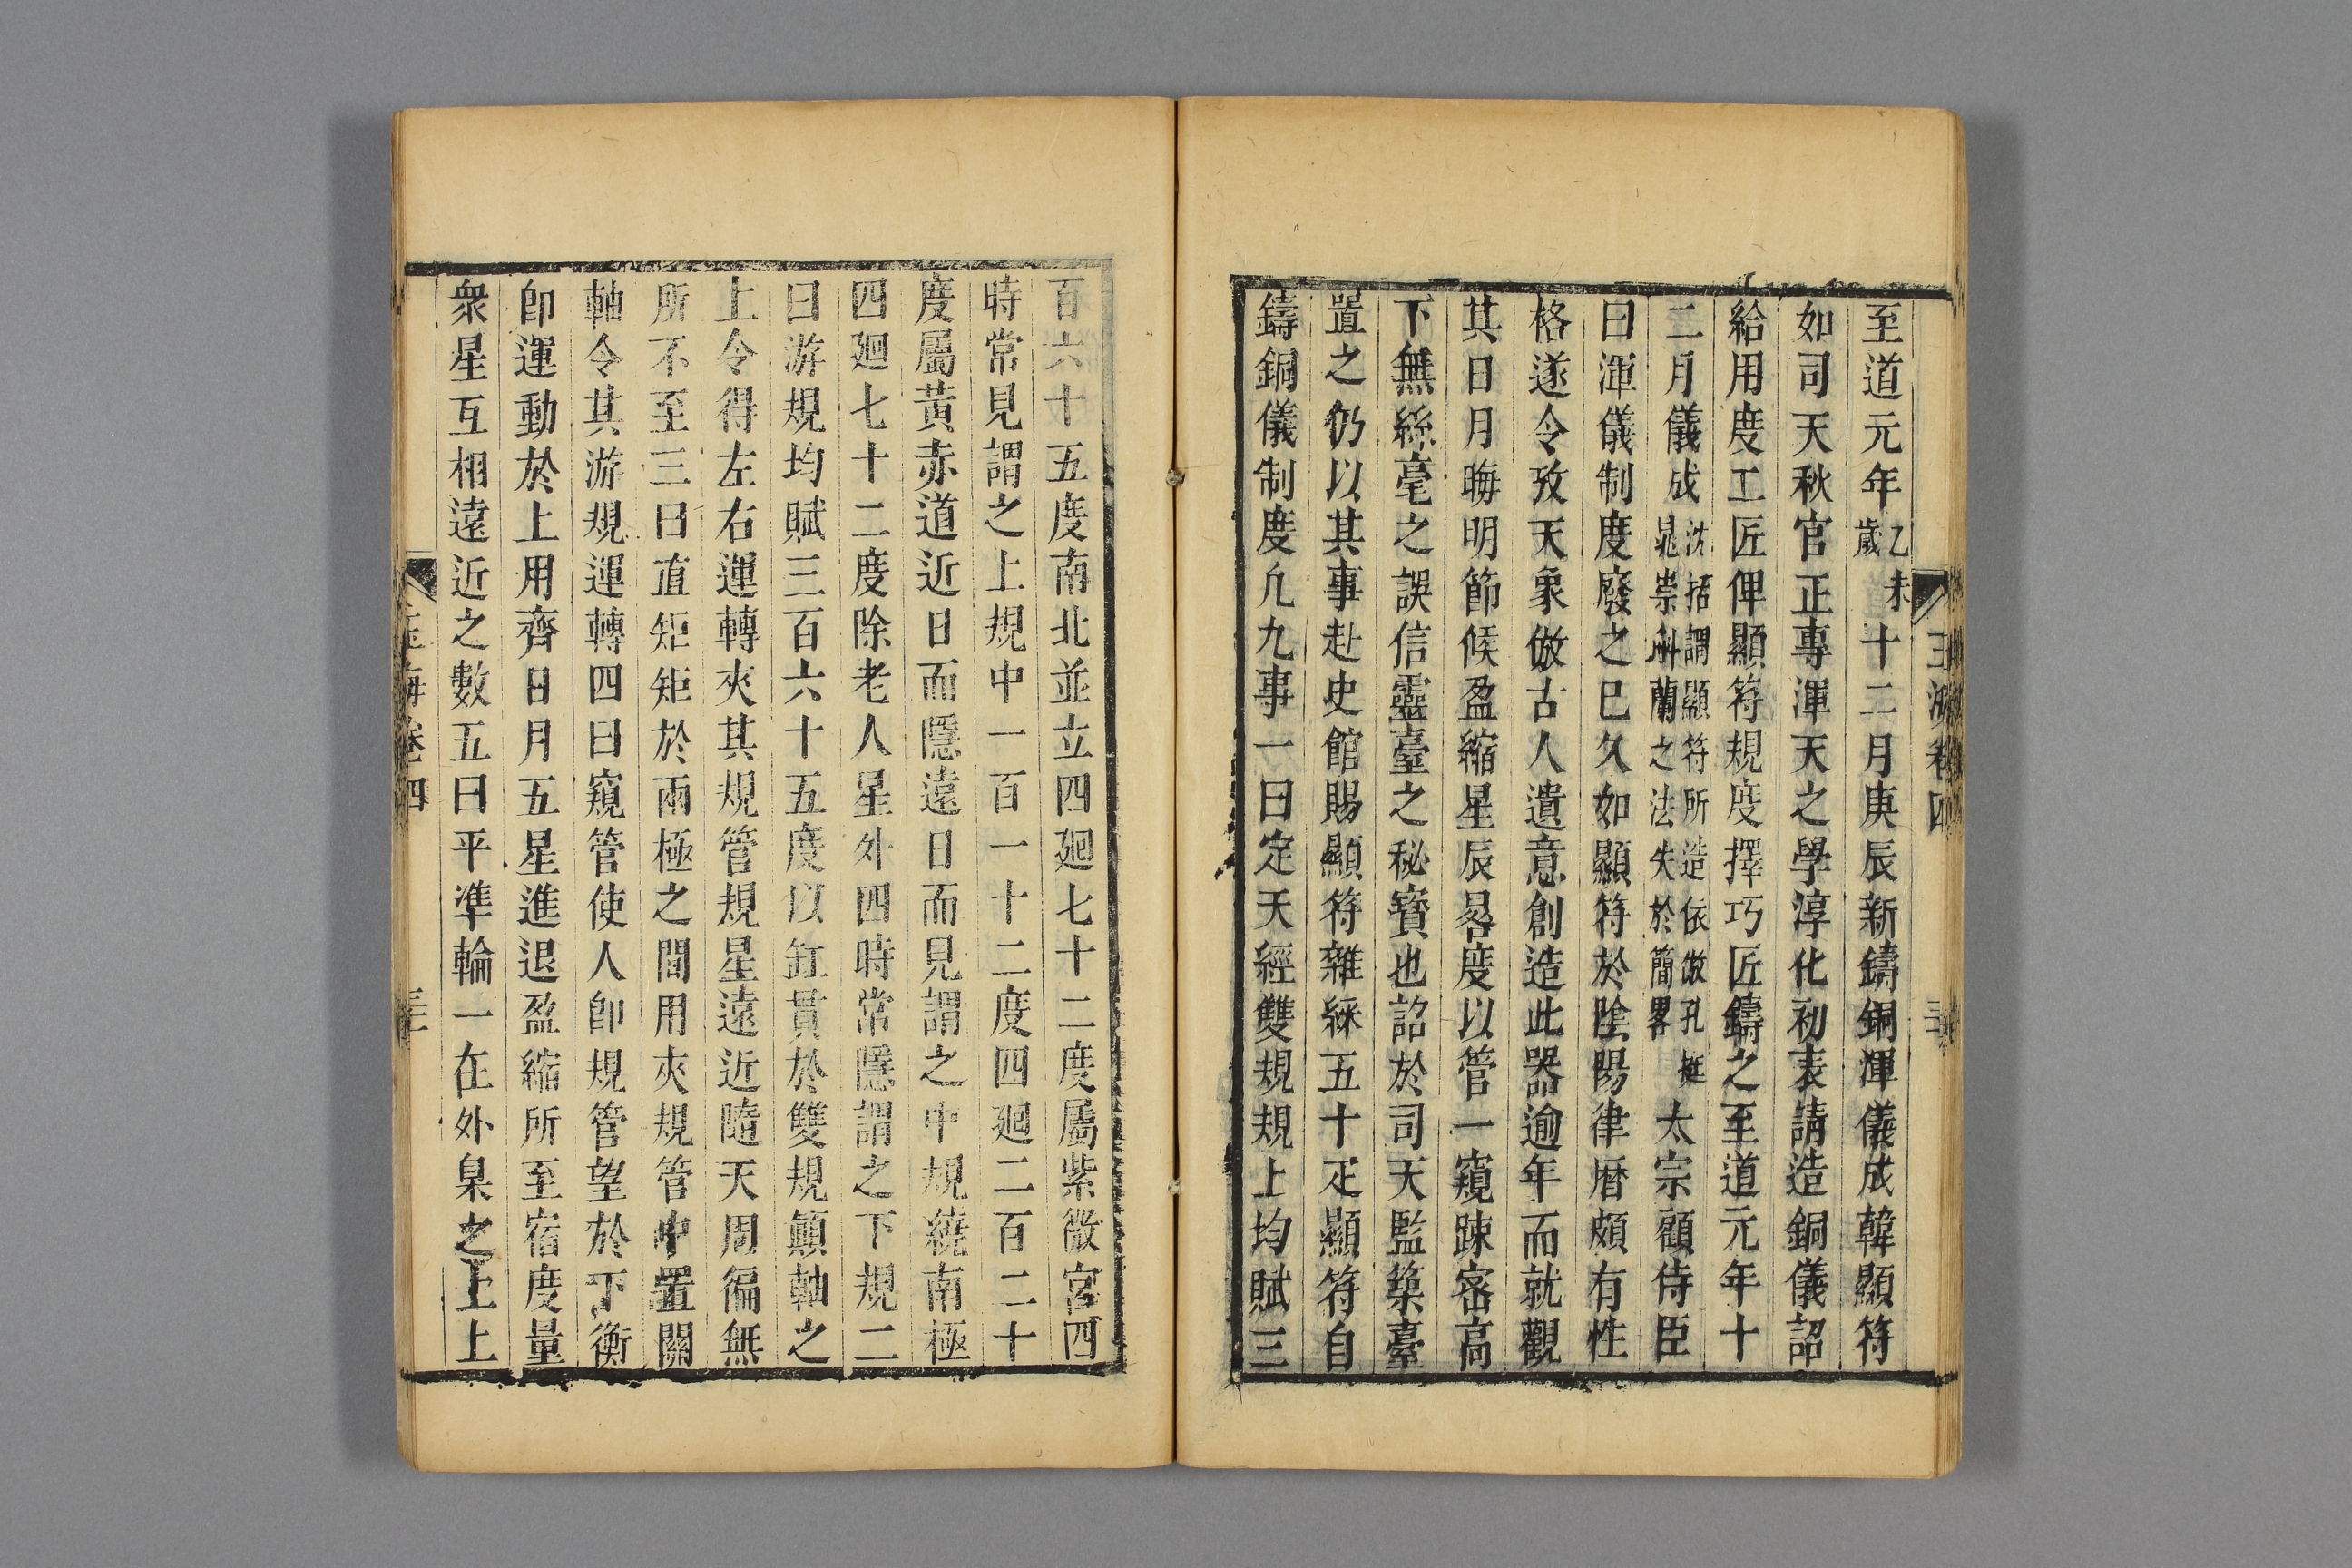 至道元年乙未歲十二月庚辰新鑄銅渾儀成韓顯符
如司天秋官正專渾天之學淳化初表請造銅儀詔
給用度工匠俾顯符規度擇巧匠鑄之至道元年十
二月儀成沈括謂顯符所造依倣孔挺晁崇斛蘭之法失於簡畧太宗顧侍臣
曰渾儀制度廢之已久如顯符於陰陽律曆頗有性
格遂令攷天象倣古人遺意創造此器逾年而就觀
其日月晦明節候盈縮星辰晷度以管一窺踈密高
下無絲毫之誤信靈臺之秘寶也詔於司天監築臺
置之仍以其事赴史館賜顯符雜綵五十疋顯符自
鑄銅儀制度凡九事一曰定天經雙規規上均賦三
百六十五度南北並立四廻七十二度屬紫微宮四
時常見謂之上規中一百一十二度四廻二百二十
度屬黃赤道近日而隱遠日而見謂之中規繞南極
四廻七十二度除老人星外四時常隱謂之下規二
曰游規均賦三百六十五度以釭貫於雙規顛軸之
上令得左右運轉夾其規管規星遠近隨天周徧無
所不至三曰直矩矩於兩極之間用夾規管中置關
軸令其游規運轉四曰窺管使人卽規管望於下衡
卽運動於上用齊日月五星進退盈縮所至宿度量
衆星互相遠近之數五曰平準輪一在外臬之上上
玉海卷四